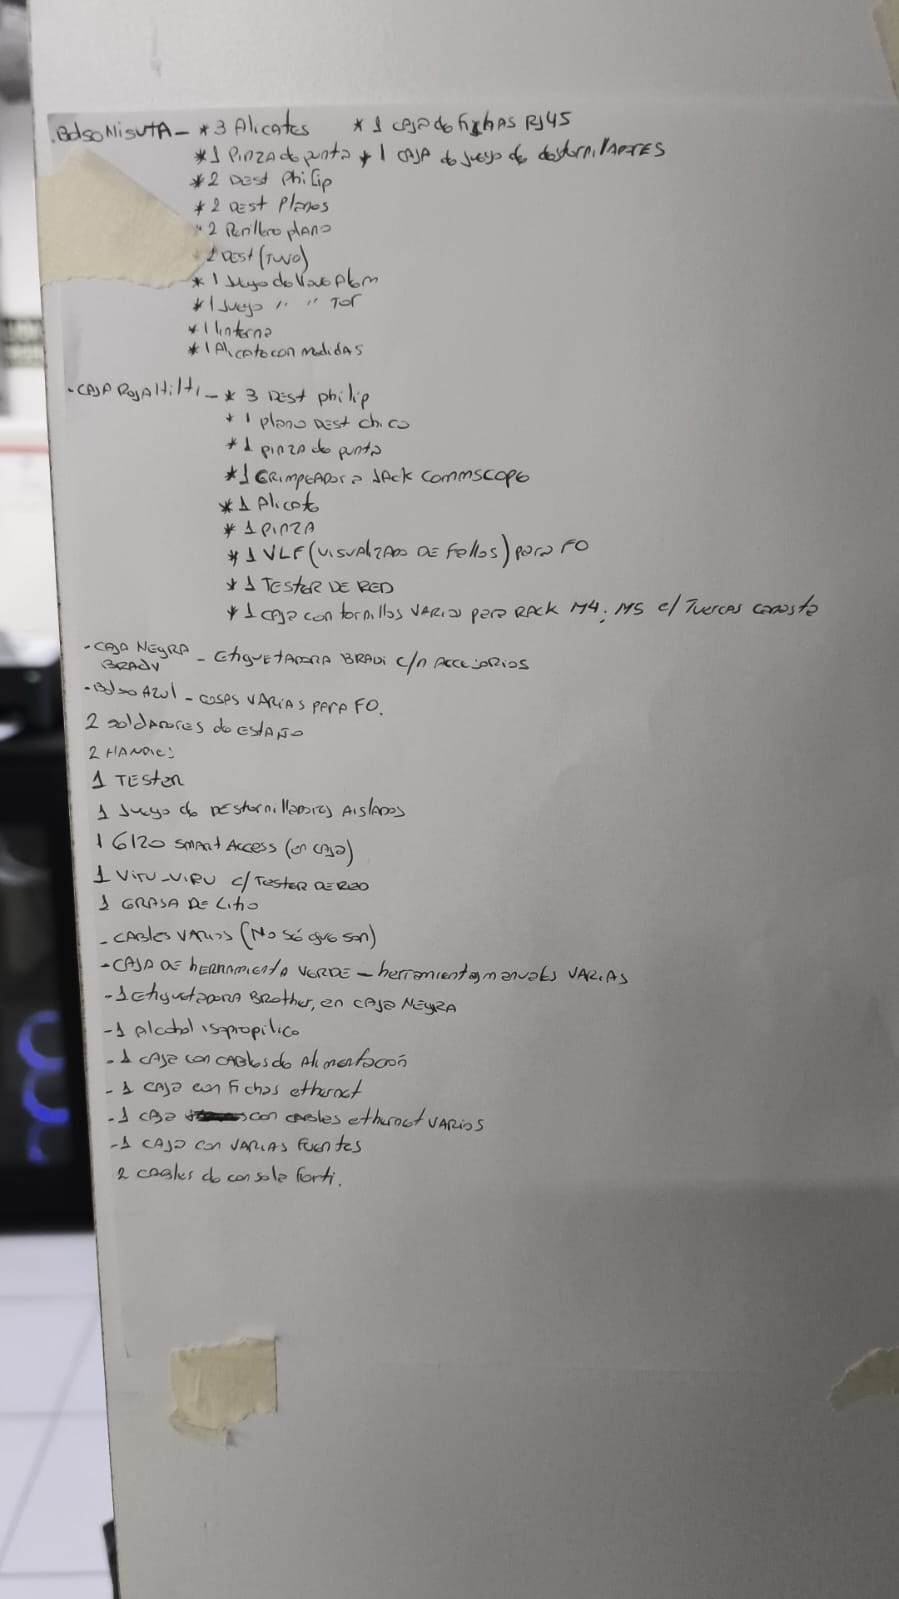 .Bolso Misuta - * 3 Alicates * 1 caja de fichas RJ45
* 1 Pinza de punta * 1 caja de juego de destornilladores
* 2 Dest Philip
* 2 Dest Planos
* 2 plano
Dest (Tuvo)
* 1 Juego de
* 1 Juego " " Tor
* 1 linterna
* 1 Alicate con medidas
- Caja Roja Hilti - * 3 Dest philip
* 1 plano Dest chico
* 1 pinza de punta
* 1 Grimpeadora Jack Commscope
* 1 Alicate
* 1 pinza
* 1 VLF (visualizado de fallos) para FO
* 1 Tester de red
* 1 caja con tornillos varios para Rack M4, M5 c/ Tuercas canasta
- Caja Negra
Brady - Etiquetadora Bradi c/n accesorios
- Bolso Azul - cosas varias para FO.
2 soldadores de estaño
2 Handie:
1 Tester
1 Juego de Destornilladores Aislados
1 6120 Smart Access (en caja)
1 Viru-Viru c/ Tester de red
1 Grasa de Litio
- Cables varios (No sé que son)
- Caja de herramienta verde - herramientas manuales varias
- 1 Etiquetadora Brother, en caja negra
- 1 Alcohol isopropilico
- 1 caja con cables de Alimentación
- 1 caja con fichas ethernet
- 1 caja con cables ethernet varios
- 1 caja con varias fuentes
2 cables de consola forti.